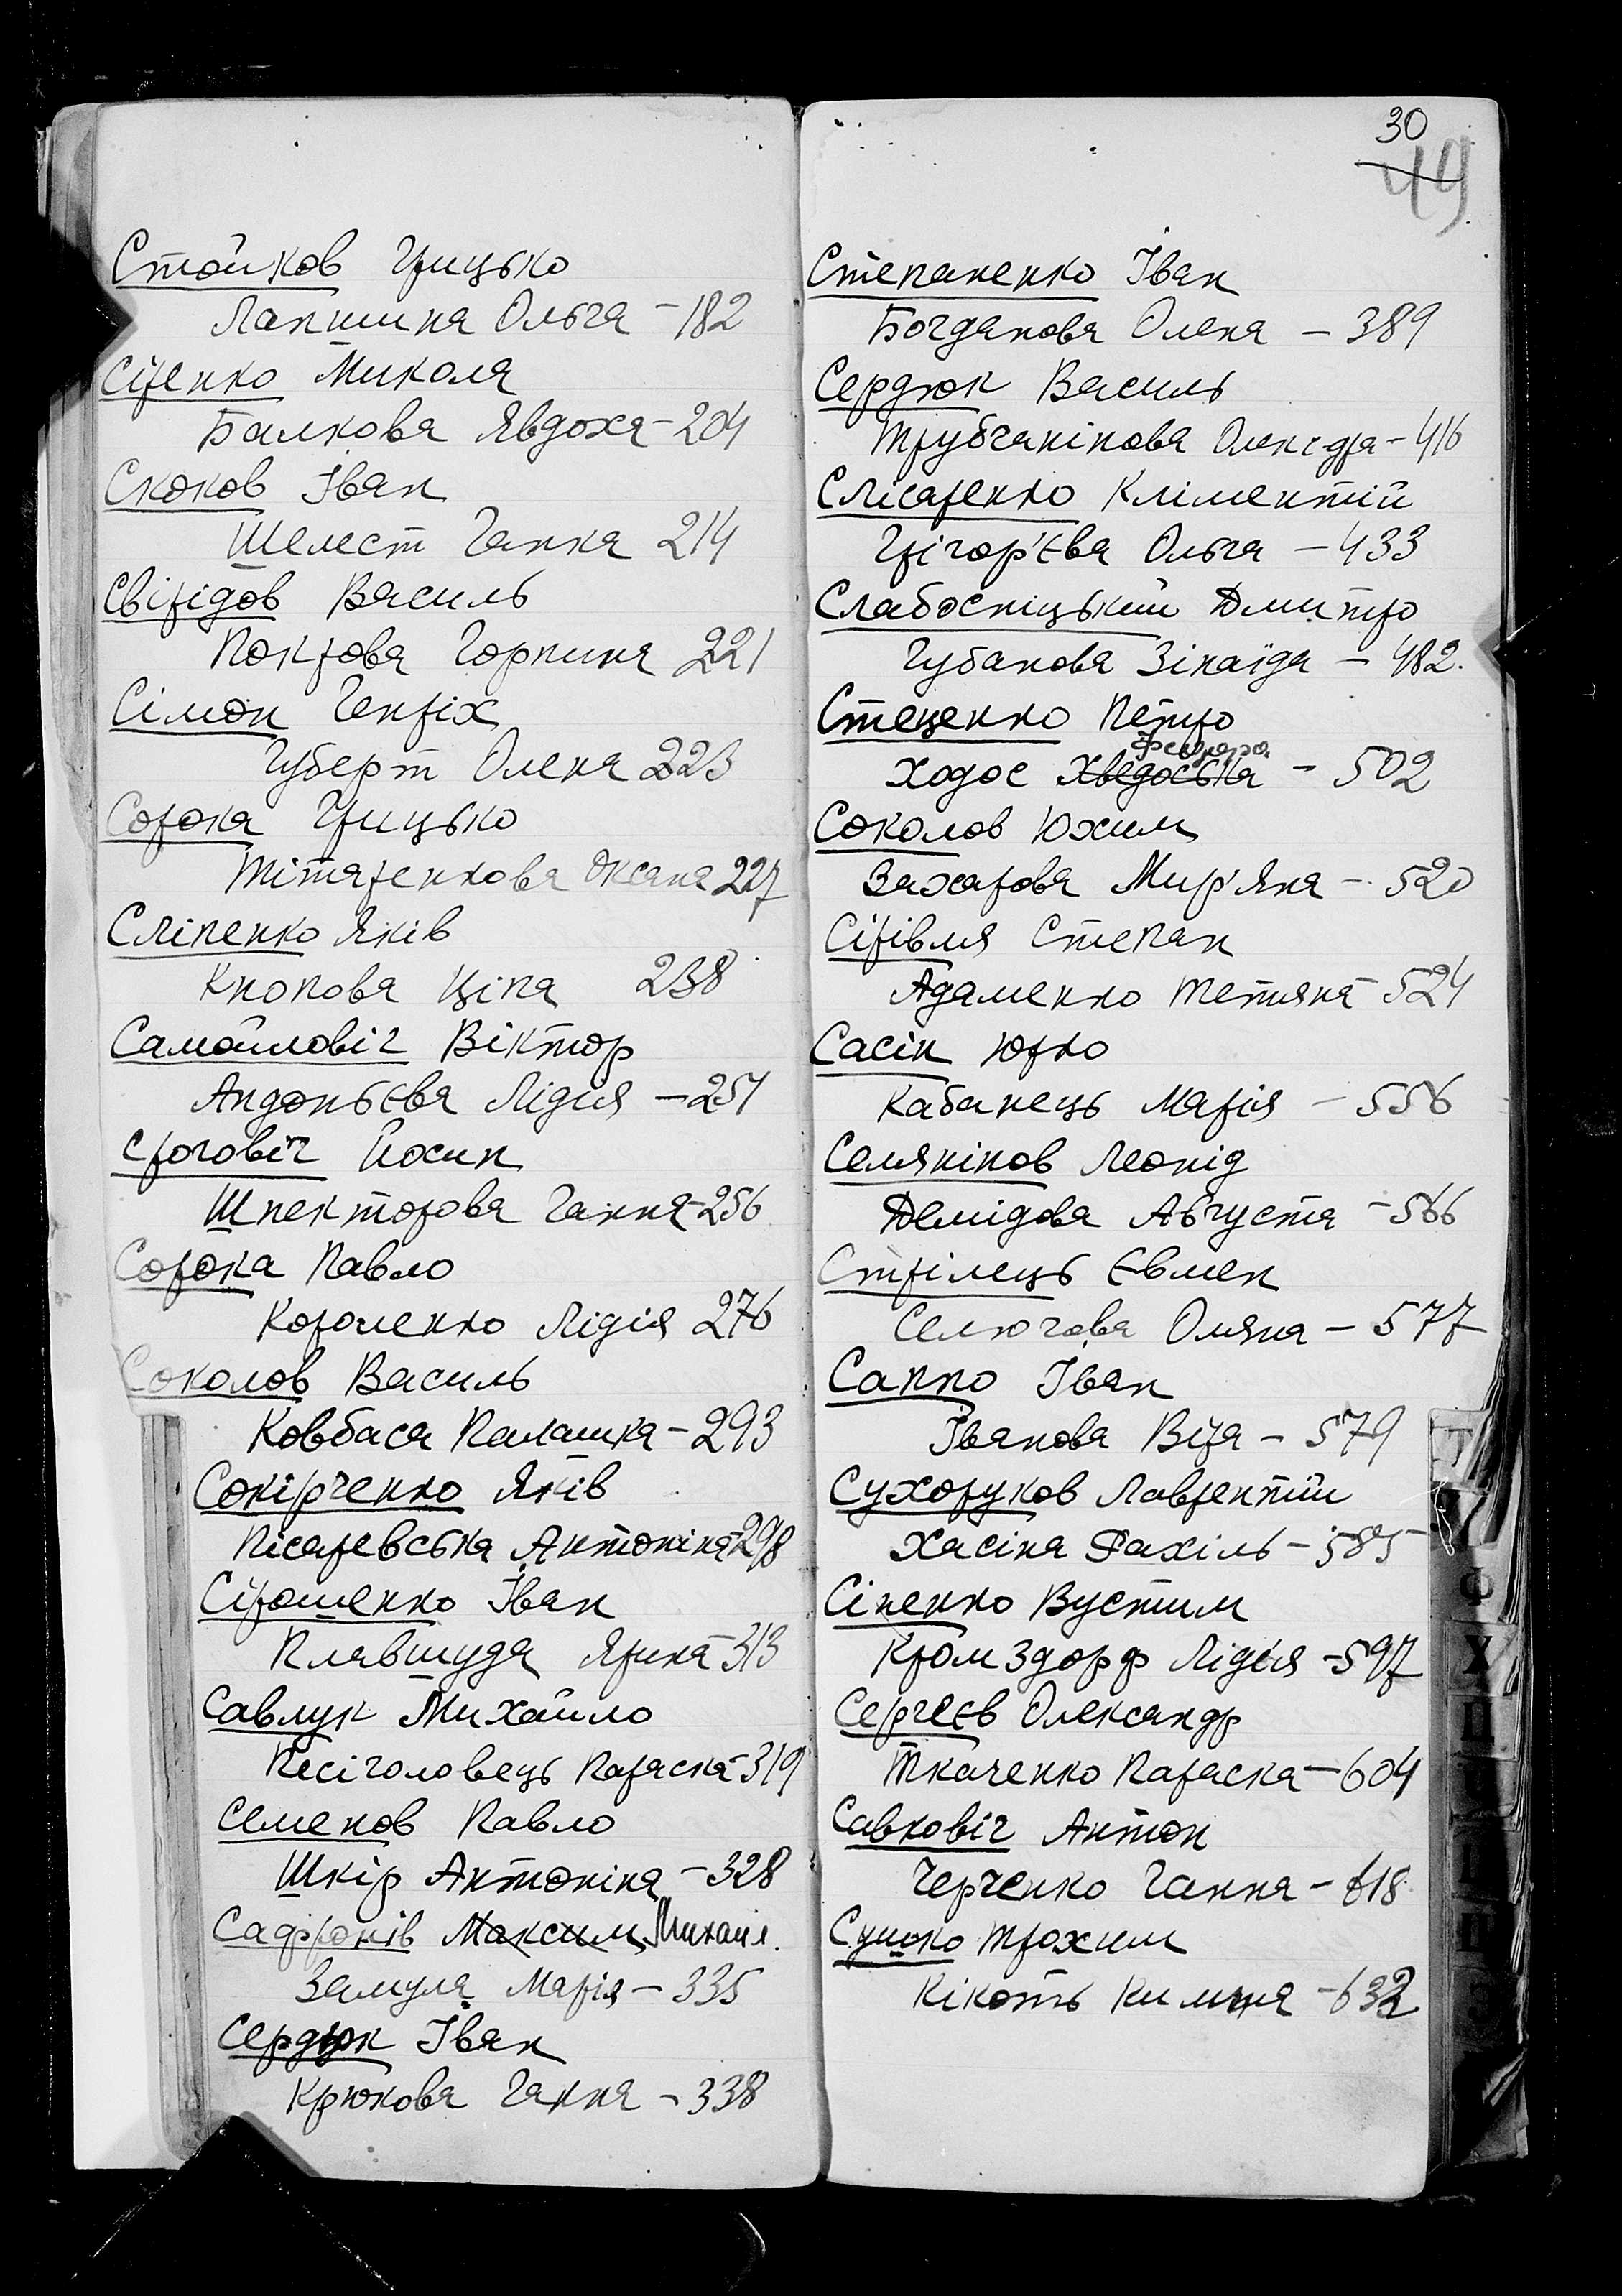 Стойков Грицько
Лапшина Ольга - 182
Сіренко Микола
Балкова Явдоха - 204
Скоков Іван
Шелест Ганна 214
Свірідов Василь
Покрова Горпина 221
Сімон Генріх
Губерт Олена 223
Сорока Грицько
Тітаренкова Оксана 227
Сліпенко Яків
Кнопова Ціпа 238
Самойловіч Віктор
Андоньєва Лідия - 251
Сроговіч Йосип
Шпекторова Ганна - 256
Сорока Павло
Короленко Лідія 276
Соколов Василь
Ковбаса Палашка - 293
Сокірченко Яків
Пісаревська Антоніна - 298
Сірошенко Іван
Плявшуда Ярина - 313
Савлук Михайло
Песіголовець Параска - 319
Семенов Павло
Шкір Антоніна - 328
Сафронів Максим Михайл.
Замула Марія - 335
Сердюк Іван
Крюкова Ганна - 338
30
49
Степаненко Іван
Богданова Олена - 389
Сердюк Василь
Трубчанінова Олександра - 416
Слісаренко Кліментій
Грігор'єва Ольга - 433
Слабоспіцький Дмитро
Губанова Зінаїда - 482.
Стеценко Петро
Феодора
Ходос Хведоська - 502
Соколов Юхим
Захарова Мир'яна - 520
Сірівля Степан
Адаменко Тетяна - 524
Сасін Юрко
Кабанець Марія - 556
Семяніков Леонід
Демідова Августа - 566
Стрілець Євмен
Селючова Оляна - 577
Саппо Іван
Іванова Віра - 579
Сухоруков Лаврентій
Хасіна Рахіль - 585
Сіненко Вустим
Кромздорф Лідия - 597
Сергеєв Олександр
Ткаченко Параска - 604
Савковіч Антон
Черченко Ганна - 618
Сушко Трохим
Кікоть Килина - 632
Ф
Х